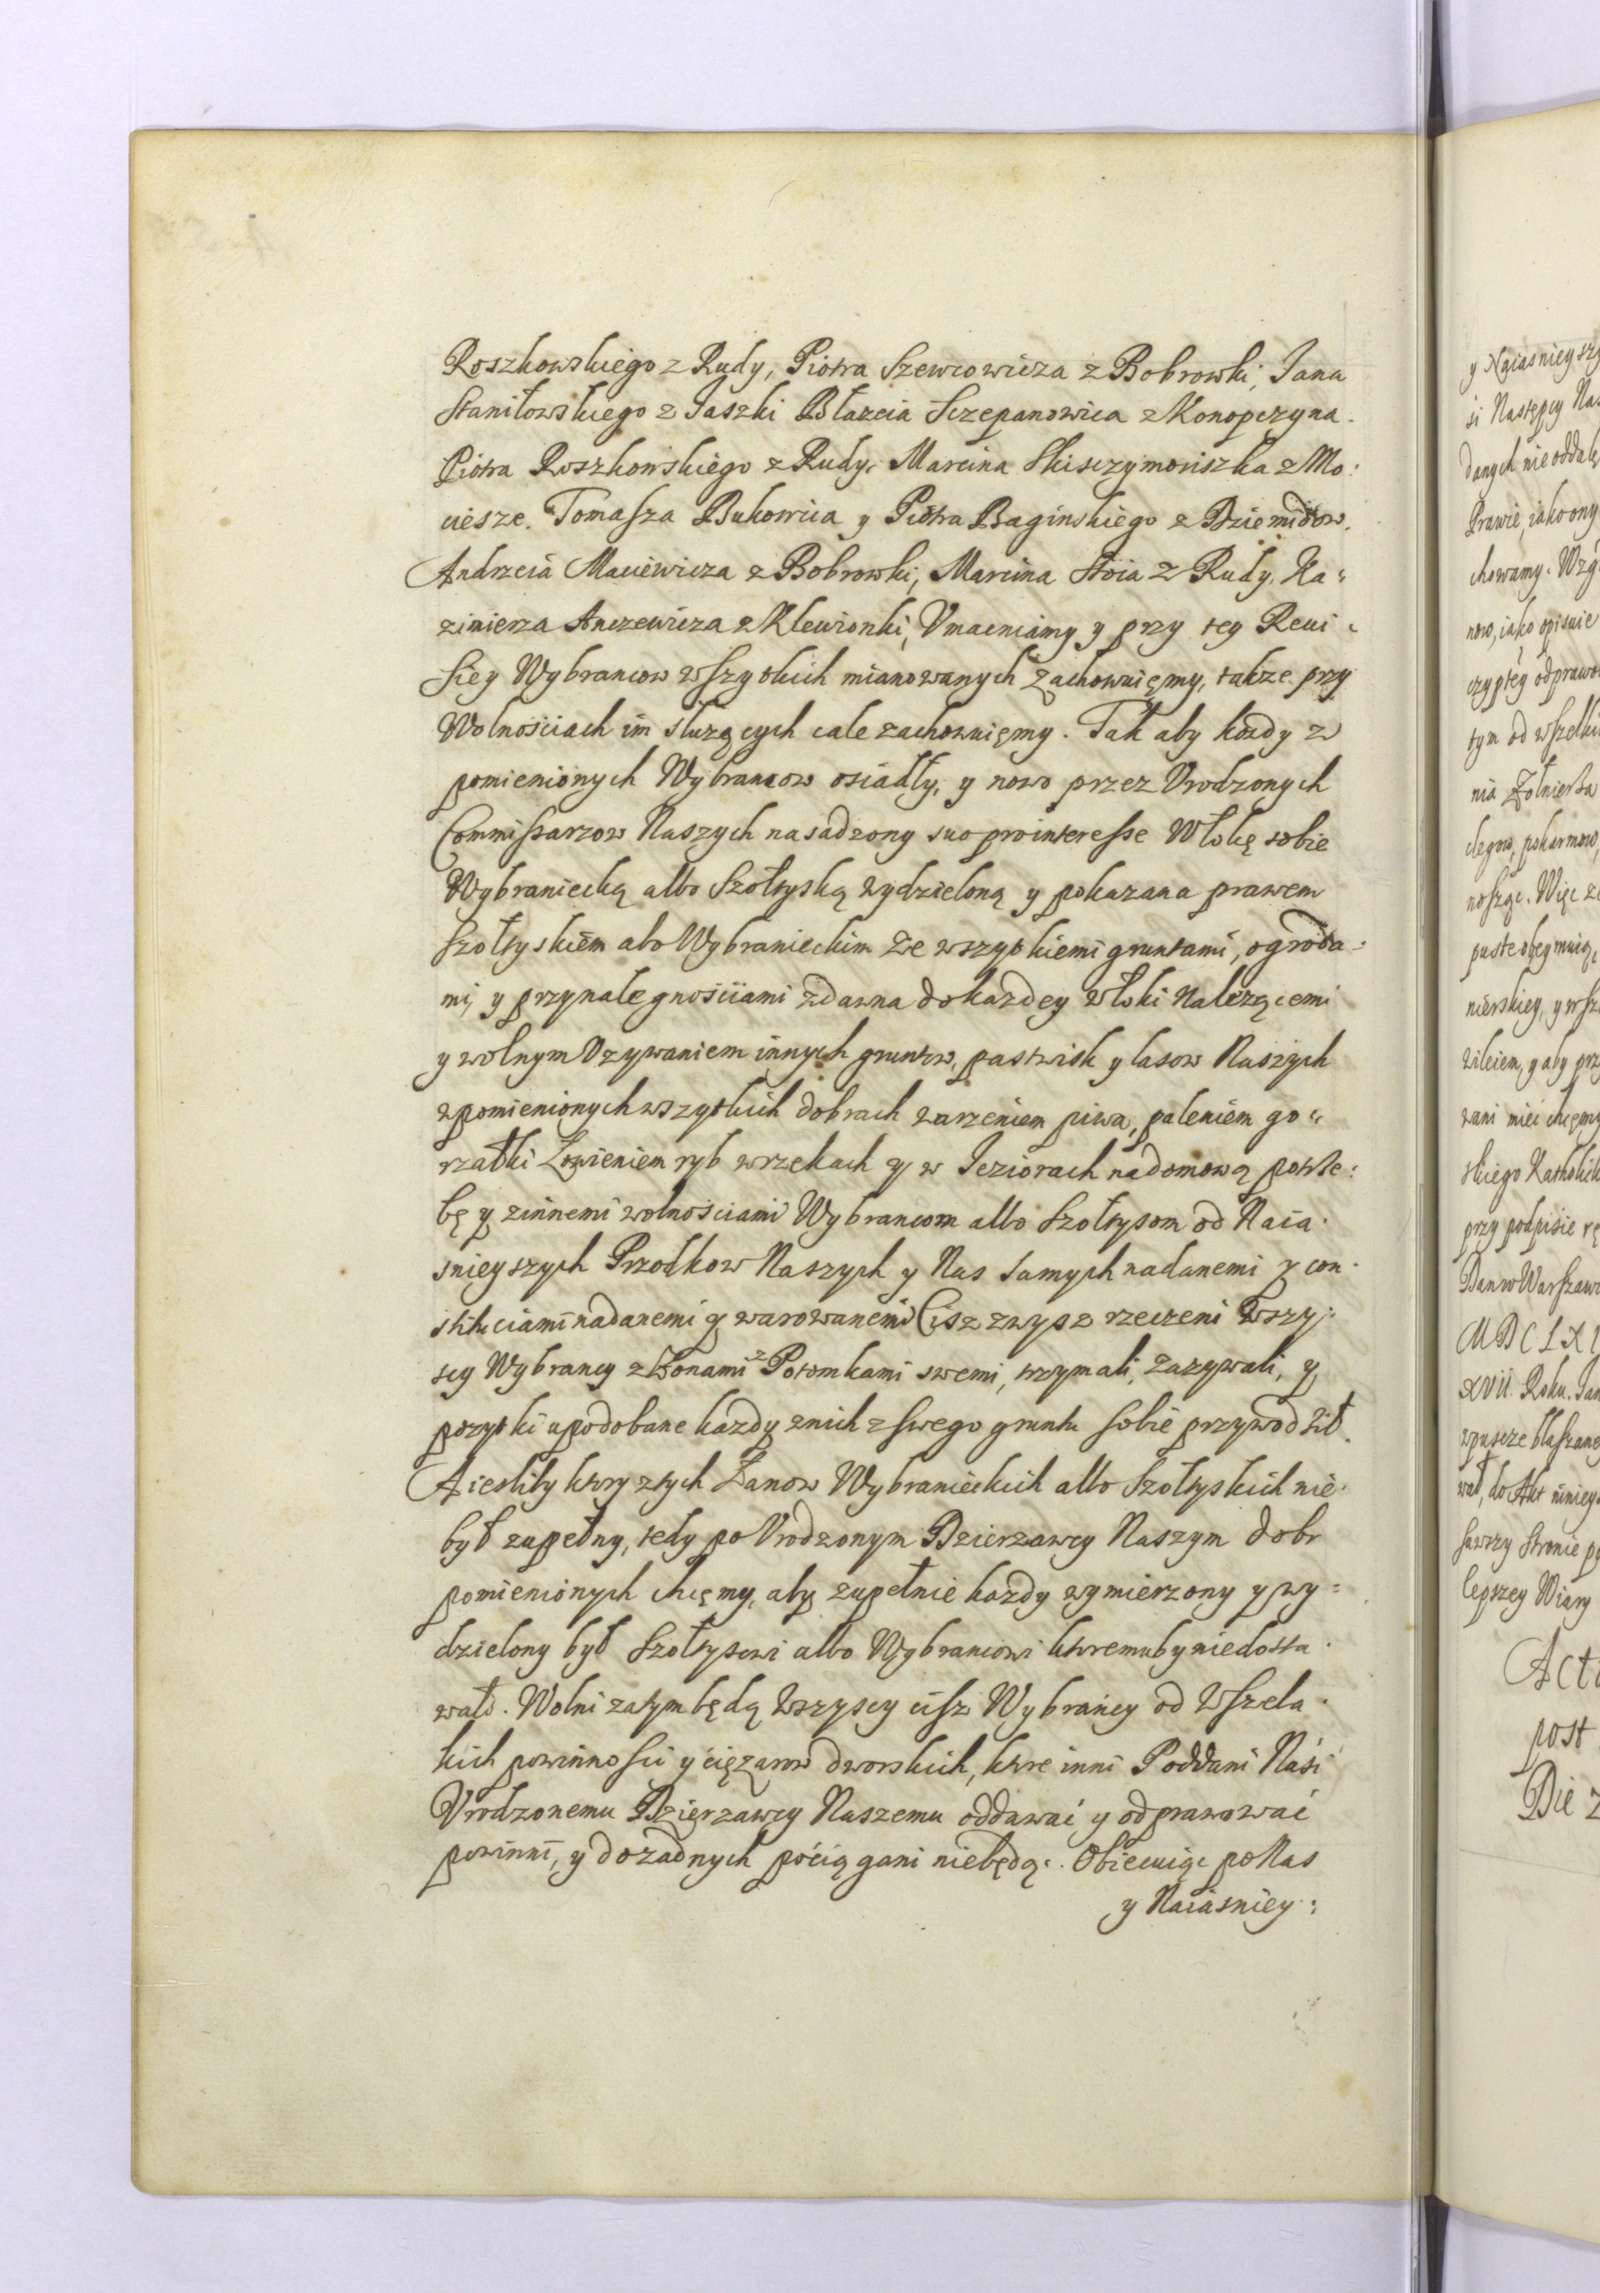 Roszkowskiego z Rudy, Piotra Szewcowicza z Bobrowki, Jana
Staniłowskiego z Jaszki Błazeia Sczepanowica z Konopczyna.
Piotra Roszkowskiego z Rudy, Marcina Skisczymoniszka z Mo:
ciesze. Tomasza Bukowica y Piotra Baginskiego z Dziemidow.
Andrzeia Maciewicza z Bobrowki, Marcina Stoia z Rudy, Ka:
zimierza Anczewicza z Klewionki, Vmacniamy y przy tey Reui:
siey Wybrancow wszytkich mianowanych zachowuięmy, takze przy
Wolnościach im służących cale zachowuięmy. Tak aby kozdy z
pomienionych Wybrancow osiadły, y nowo przez Vrodzonych
Commissarzow Naszych nasadzony suo pro interesse Włokę sobie
Wybraniecką albo Szołtyską wydzieloną y pokazana prawem
Szołtyskiem abo Wybranieckim ze wszytkiemi gruntami, ogroda:
mi, y przynalegnościami zdawna do kazdey włoki Należącemi
y wolnym Vzywaniem innych gruntow, pastwisk y lasow Naszych
w pomienionych wszytkich dobrach warzeniem piwa, paleniem go:
rzałki Łowieniem ryb w rzekach y w Jeziorach na domową potrze:
bę y zinnemi wolnosciami Wybrancom albo Szołtysom od Naia:
snieyszych Przodkow Naszych y Nas samych nadanemi y con:
stituciami nadanemi y warowanemi Cisz zwysz rzeczeni Wszy:
scy Wybrancy z Żonami z Potomkami swemi, trzymali, zazywali, y
pozytki upodobane kazdy znich z swego gruntu sobie przywodził.
A iesliby ktory z tych Łanow Wybranieckich albo Szołtyskich nie
był zupełny, tedy po Vrodzonym Dzierzawcy Naszym dobr
pomienionych chcęmy, aby zupełnie kazdy wymierzony y wy:
dzielony był Szołtysowi albo Wybrancowi ktoremuby niedosta:
wało. Wolni zatym będą wszyscy cisz Wybrańcy od wszela:
kich powinnosci y cięzarow dworskich, ktore inni Poddani Naśi
Vrodzonemu Dzierzawcy Naszemu oddawać y odprawować
powinni, y do zadnych pociągani niebędąc. Obiecuiąc po Nas
y Naiasniey:
y Naiasnieyszy
si Następcy Nas
danych nie oddalę
Prawie, iako ony
chowamy. Wzg
now, iako opisuie
tym od wszelki
nia Żołniersta
clegow, pokarmow,
nosząc. Więc
puste obeymuią
nierskiey, y wsz
wileiem, y aby prz
wani mieć chcęmy
skiego Katholik
przy podpisie rę
Dan w Warszaw
XVII Roku. Jan
lepszey Wiary
Acta
post
Die